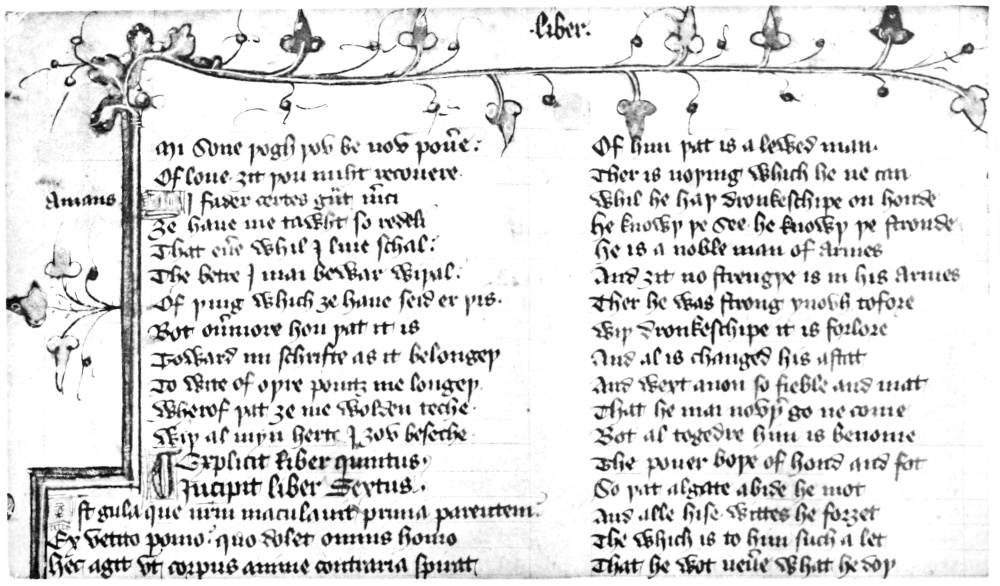 ·liber·
Mi Sone þogh þov be nov poũe:
Of loue ȝit þou miht recouere·
Amans
I fader certes gr̃t m̃ci
Ȝe haue me tawht so redeli
That eũe whil I liue schal:
The betre I mai bewar wiþal:
Of þing which ȝe haue seid er þis·
Bot oũmore hou þat it is
Toward mi schrifte as it belongeþ
To wite of oþre pointz me longeþ·
Wherof þat ȝe me wolden teche·
Wiþ al myn herte I ȝov beseche·
Explicit Liber quintus·
Incipit liber Sextus·
Est gula que nrm̃ maculauit prima parentem:
Ex vetito pomo: quo dolet omnis homo
Hec agit vt corpus anime contraria spirat
Of him þat is a lewed man·
Ther is noþing which he ne can
Whil he haþ dronkeschipe on honde
He knowþ þe See· he knowþ þe stronde·
He is a noble man of armes
And ȝit no strengþe is in his Armes
Ther he was strong ynovh tofore
Wiþ dronkeschipe it is forlore
And al is changed his astat
And wext anon so fieble and mat
That he mai novþ̃ go ne come
Bot al togedre him is benome
The pouer boþe of hond and fot
So þat algate abide he mot
And alle hise wittes he forȝet
The which is to him such a let
That he wot neũe what he doþ